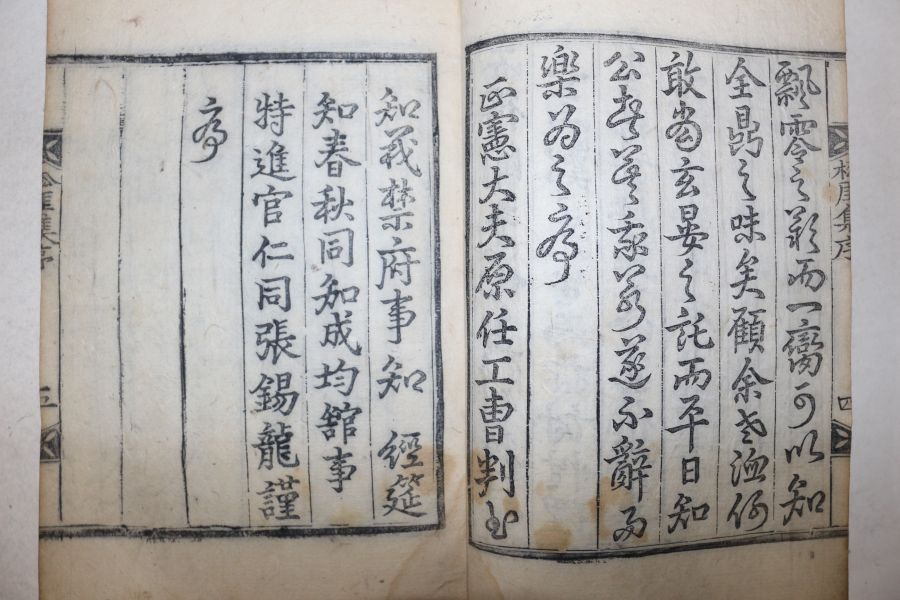 松厓集序 四
飄零之歎而一臠可以知
全鼎之味矣顧余老洫何
敢當玄晏之託而平日知
公者莫我若遂不辭而
樂为之序
正憲大夫原任工曹判書
知義禁府事知 經筵
知春秋同知成均館事
特進官仁同張錫龍謹
序
松厓集序 五